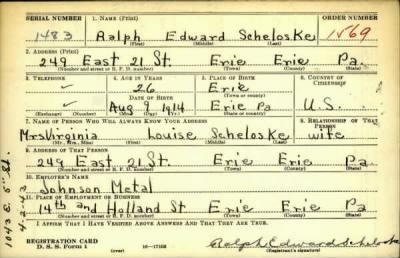 SERIAL NUMBER 1. NAME (Print) ORDER NUMBER
1483 Ralph Edward Scheloske 1569
(First) (Middle) (Last)
2. ADDRESS (Print)
249 East 21 St. Erie Erie Pa.
(Number and street or R. F. D. number) (Town) (County) (State)
3. TELEPHONE 4. AGE IN YEARS 5. PLACE OF BIRTH 6. COUNTRY OF CITIZENSHIP
26 Erie
(Town or county)
DATE OF BIRTH
Aug 9 1914 Erie Pa U.S.
(Exchange) (Number) (Mo.) (Day) (Yr.) (State or country)
7. NAME OF PERSON WHO WILL ALWAYS KNOW YOUR ADDRESS 8. RELATIONSHIP OF THAT PERSON
Mrs Virginia Louise Scheloske wife
(Mr., Mrs., Miss) (First) (Middle) (Last)
9. ADDRESS OF THAT PERSON
249 East 21 St. Erie Erie Pa.
(Number and street or R. F. D. number) (Town) (County) (State)
10. EMPLOYER'S NAME
Johnson Metal
11. PLACE OF EMPLOYMENT OR BUSINESS
14th and Holland St Erie Erie Pa.
(Number and street or R. F. D. number) (Town) (County) (State)
I AFFIRM THAT I HAVE VERIFIED ABOVE ANSWERS AND THAT THEY ARE TRUE.
REGISTRATION CARD
D. S. S. Form 1 (over) 16—17105 Ralph Edward Scheloske
(Registrant's signature)
1043 E. 5th St.
4-2-43